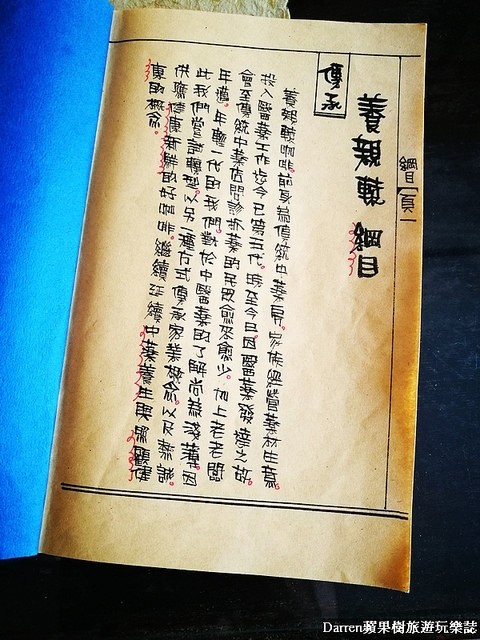 綱目 頁一
養親軒 綱目
傳承
養親軒咖啡前身為傳統中藥房。家族經營藥材生意。
投入醫藥工作迄今已第五代。時至今日因醫藥發達之故。
會至傳統中藥店問診抓藥的民眾愈來愈少。加上老老闆
年邁。年輕一代的我們。對於中醫藥的了解尚為淺薄。因
此我們嘗試轉型。以另一種方式傳承家業概念。以及無誤
供應健康新鮮的好咖啡。繼續延續中藥養生與照顧健
康的概念。
Darren蘋果樹旅遊玩樂誌